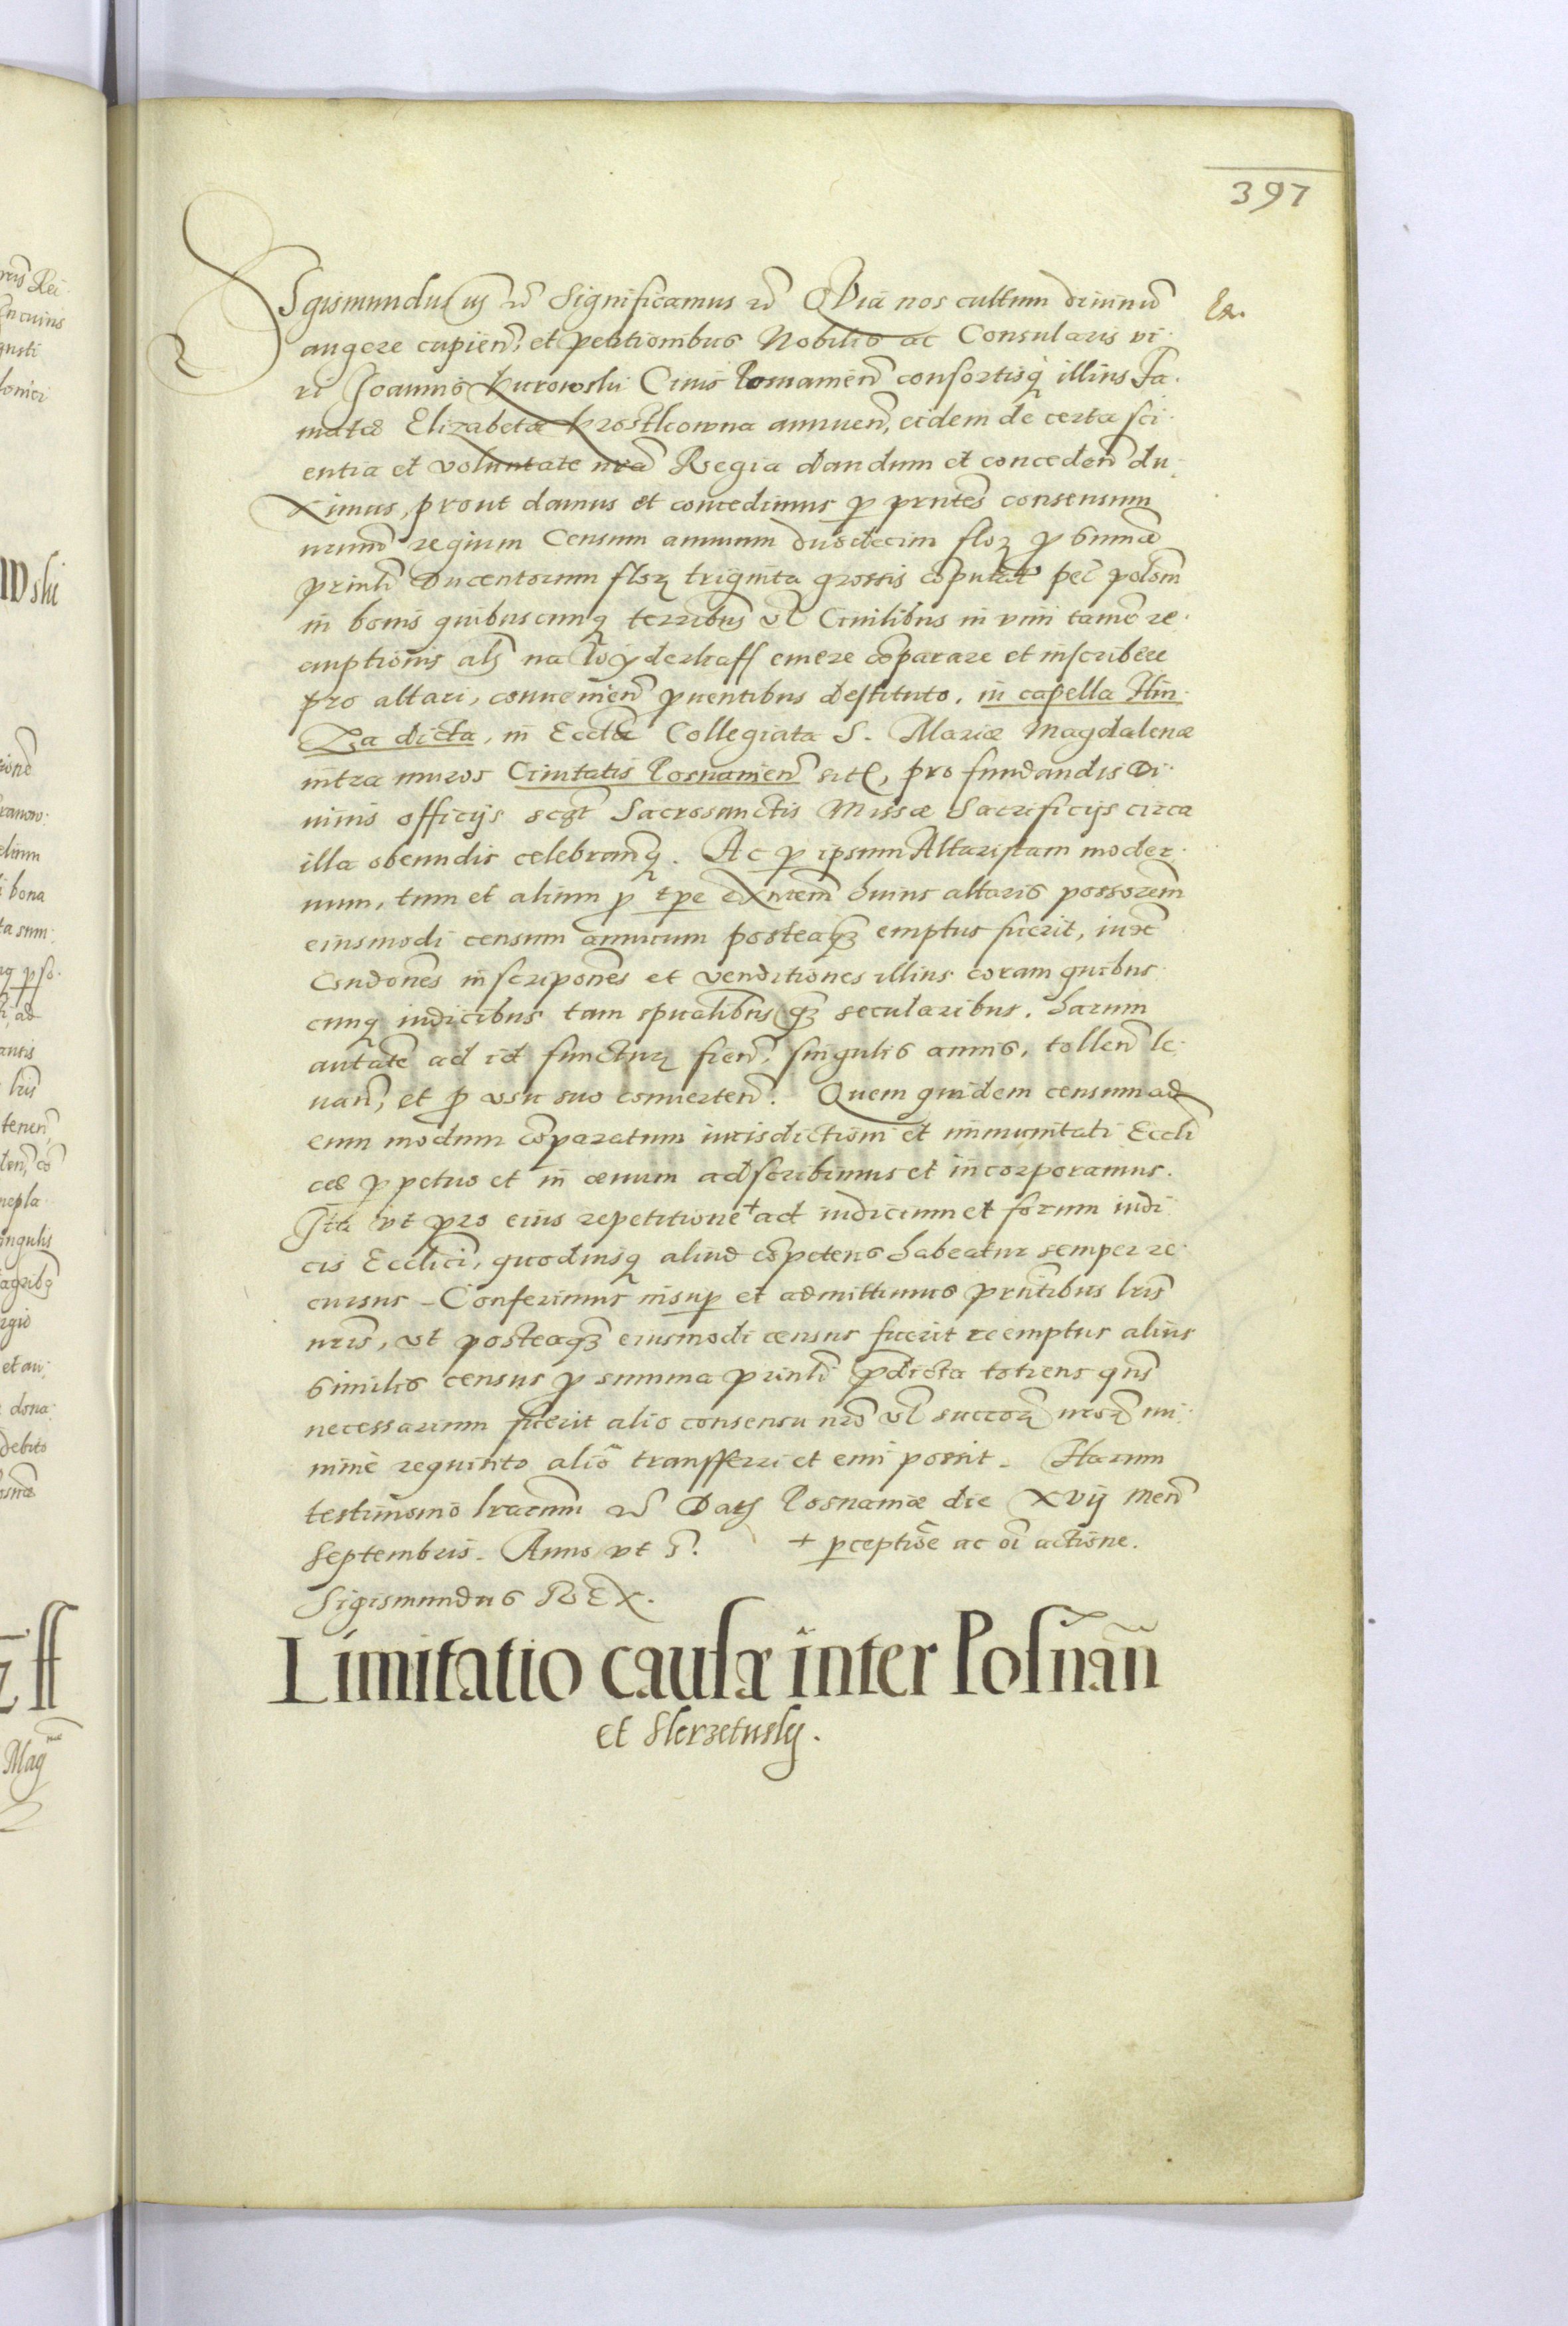 397
Sigismundus iij etc̃ Significamus etc̃ QVia nos cultum diuinũ
Ex.
augere cupieñ, et petitionibus Nobilis ac Consularis vi-
ri Joannis Kurowski Ciuis Posnanieñ consortisq̃ illius Fa-
matæ Elizabetæ Krostkowna annueñ, eidem de certa sci-
entia et voluntate nrã Regia dandum et concedeñ du-
ximus, prout damus et concedimus p̱ pñtes consensum
nrum̃ regium Censum annuum duodecim floꝝ p̱ summa
prinli Ducentorum floꝝ triginta grossis cõputat peč poloñ
in bonis quibuscunq̃ terribus vl Ciuilibus in vim tamẽ re-
emptionis als na Woÿderkaff emere cõparare et inscribere
pro altari, conuenieñ puentibus destituto, in capella Hin-
Za dicta, in Ecctia Collegiata S. Mariæ Magdalenæ
intra muros Ciuitatis Posnanieñ sitẽ, pro fundandis Di-
uinis officijs scqt Sacrosanctis Missæ Sacrificijs circa
illa obeundis celebranq̃. Ac p̱ ipsum Altaristam moder-
num, tum et alium p̱ tpe eXñtem huius altaris possorem̃
eiusmodi censum annuum posteaqꝫ emptus fuerit, iuxč
Condones inscripones et venditiones illius coram quibus-
cunq̃ iudicibus tam spualibus qꝫ secularibus, harum
autate ad id functuꝝ fieñ, singulis annis, tolleñ le-
uañ, et p̱ usu suo conuerteñ. Quem quidem censum ad
eum modum cõparatum iurisdictioni et immunitati Eccli-
cæ p̱petuo et in æuum adscribimus et incorporamus.
Ita vt pro eius repetitione + ad iudicium et forum iudi-
cis Ecclici, quoduisq̃ aliud cõpetens habeatur semper re-
cursus - Conferimus insup̱ et admittimus pñtibus lris
nris, vt posteaqꝫ eiusmodi census fuerit reemptus alius
similis census p̱ summa prinli p̱dicta totiens qñs
necessarium fuerit alio consensu nro vl succoꝝ nroꝝ mi-
nime requisito aliõ transfferri et emi possit. Harum
testimonio lrarum etc̃ Dats Posnaniæ die XVij Meñ
Septembris. Anno vt S. + p̱ceptiõe ac oĩ actione.
Sigismundus REX.
Limitatio causæ inter Posñañ
et Skrzetuskỹ.